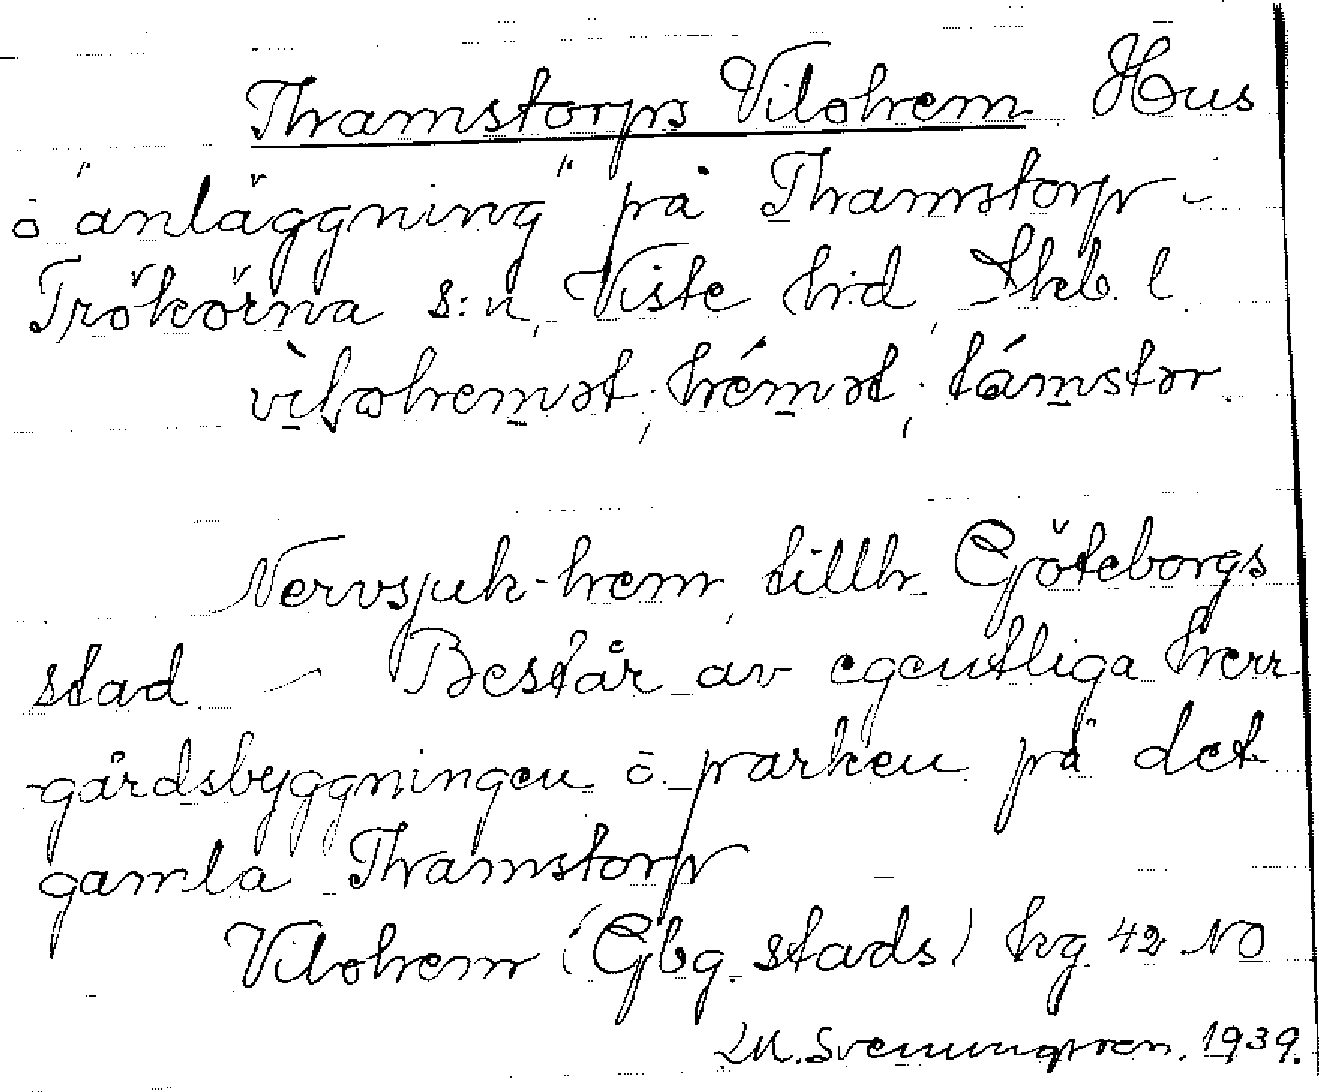 Thamstorps Vilohem Hus
o "anläggning" på Thamstorp -
Trökörna s:n, Viste hd, Skb. l.
vìlohemət; hémət; támstər
Nervsjuk-hem, tillh. Göteborgs
stad. - Består av egentliga herr
-gårdsbyggningen o. parken på det
gamla Thamstorp
Vilohem (Gbg. stads) kg. 42 NO
1939.